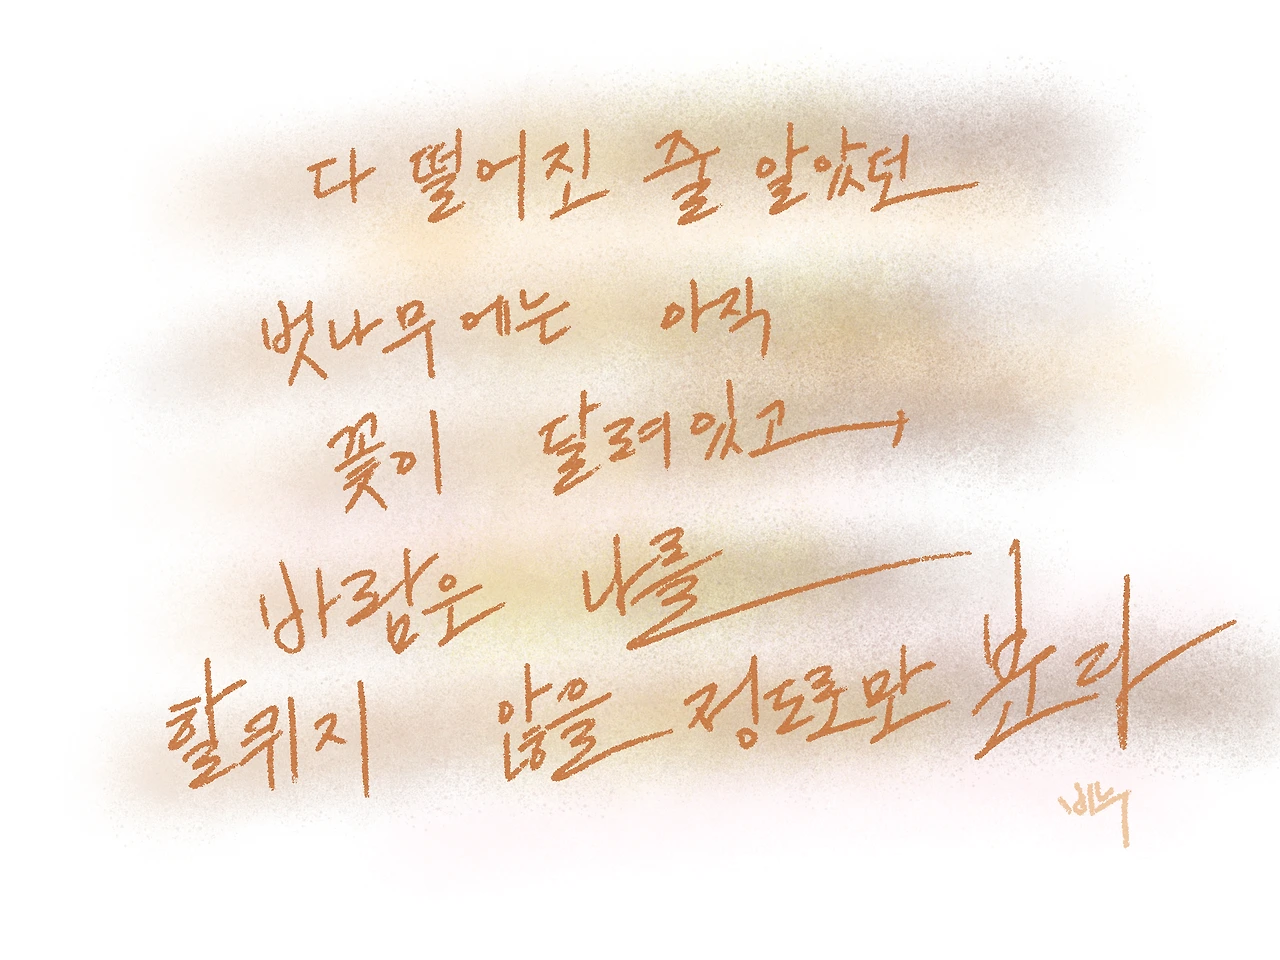 다 떨어진 줄 알았던
벚나무에는 아직
꽃이 달려있고
바람은 나를
할퀴지 않을 정도로만 분다